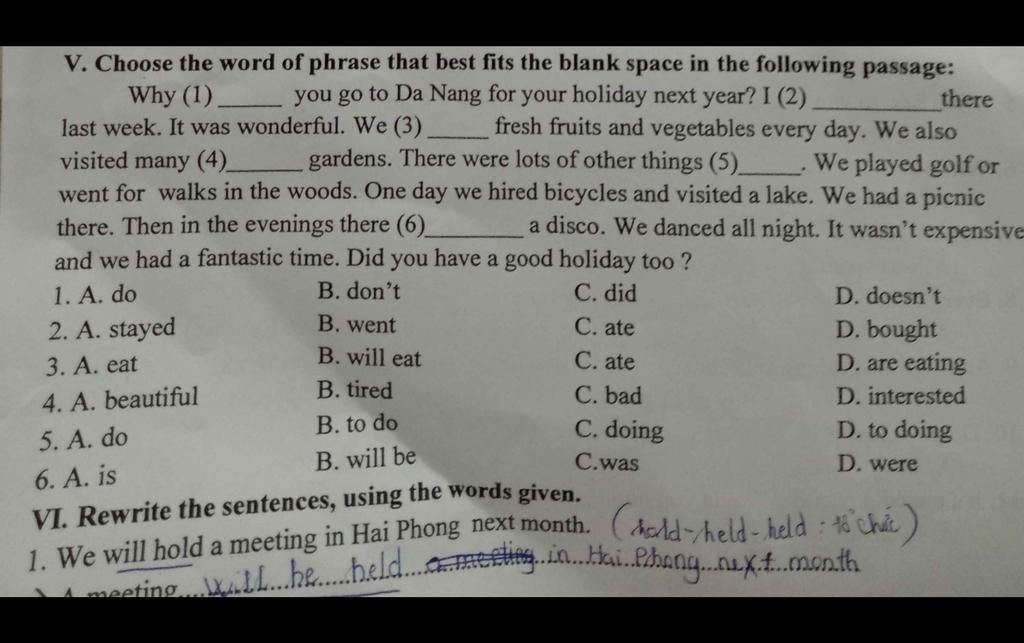 V. Choose the word of phrase that best fits the blank space in the following passage:
Why (1)_____ you go to Da Nang for your holiday next year? I (2)__________there
last week. It was wonderful. We (3)_____ fresh fruits and vegetables every day. We also
visited many (4)______ gardens. There were lots of other things (5)_____. We played golf or
went for walks in the woods. One day we hired bicycles and visited a lake. We had a picnic
there. Then in the evenings there (6)________ a disco. We danced all night. It wasn't expensive
and we had a fantastic time. Did you have a good holiday too ?
1. A. do B. don't C. did D. doesn't
2. A. stayed B. went C. ate D. bought
3. A. eat B. will eat C. ate D. are eating
4. A. beautiful B. tired C. bad D. interested
5. A. do B. to do C. doing D. to doing
6. A. is B. will be C.was D. were
VI. Rewrite the sentences, using the words given.
1. We will hold a meeting in Hai Phong next month. (hold-held-held : tổ chức)
A meeting....will...be....held....a meeting..in...Hai.Phong...next...month